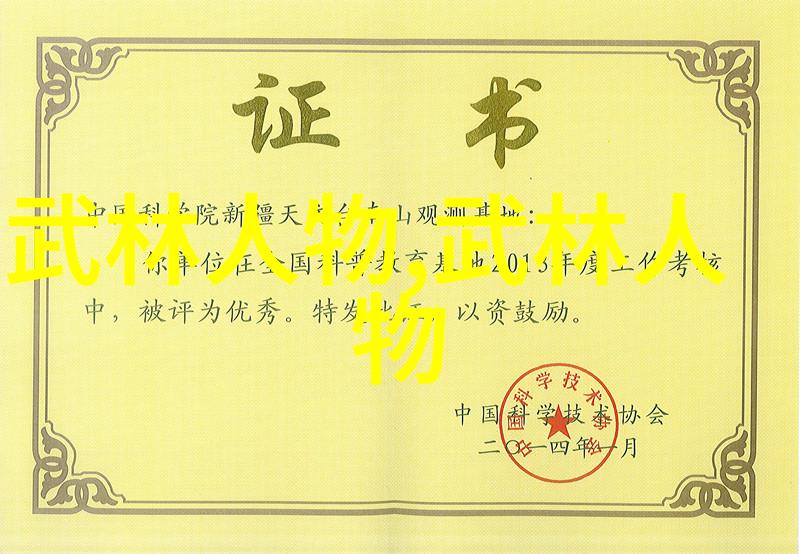 证书
中国科学院新疆天文台南山观测基地：
你单位在全国科普教育基地2013年度工作考核
中，被评为优秀。特发此证，以资鼓励。
武林人物,武林人
物
中国科学技术协会
中国科学技术协会
二〇一四年一月